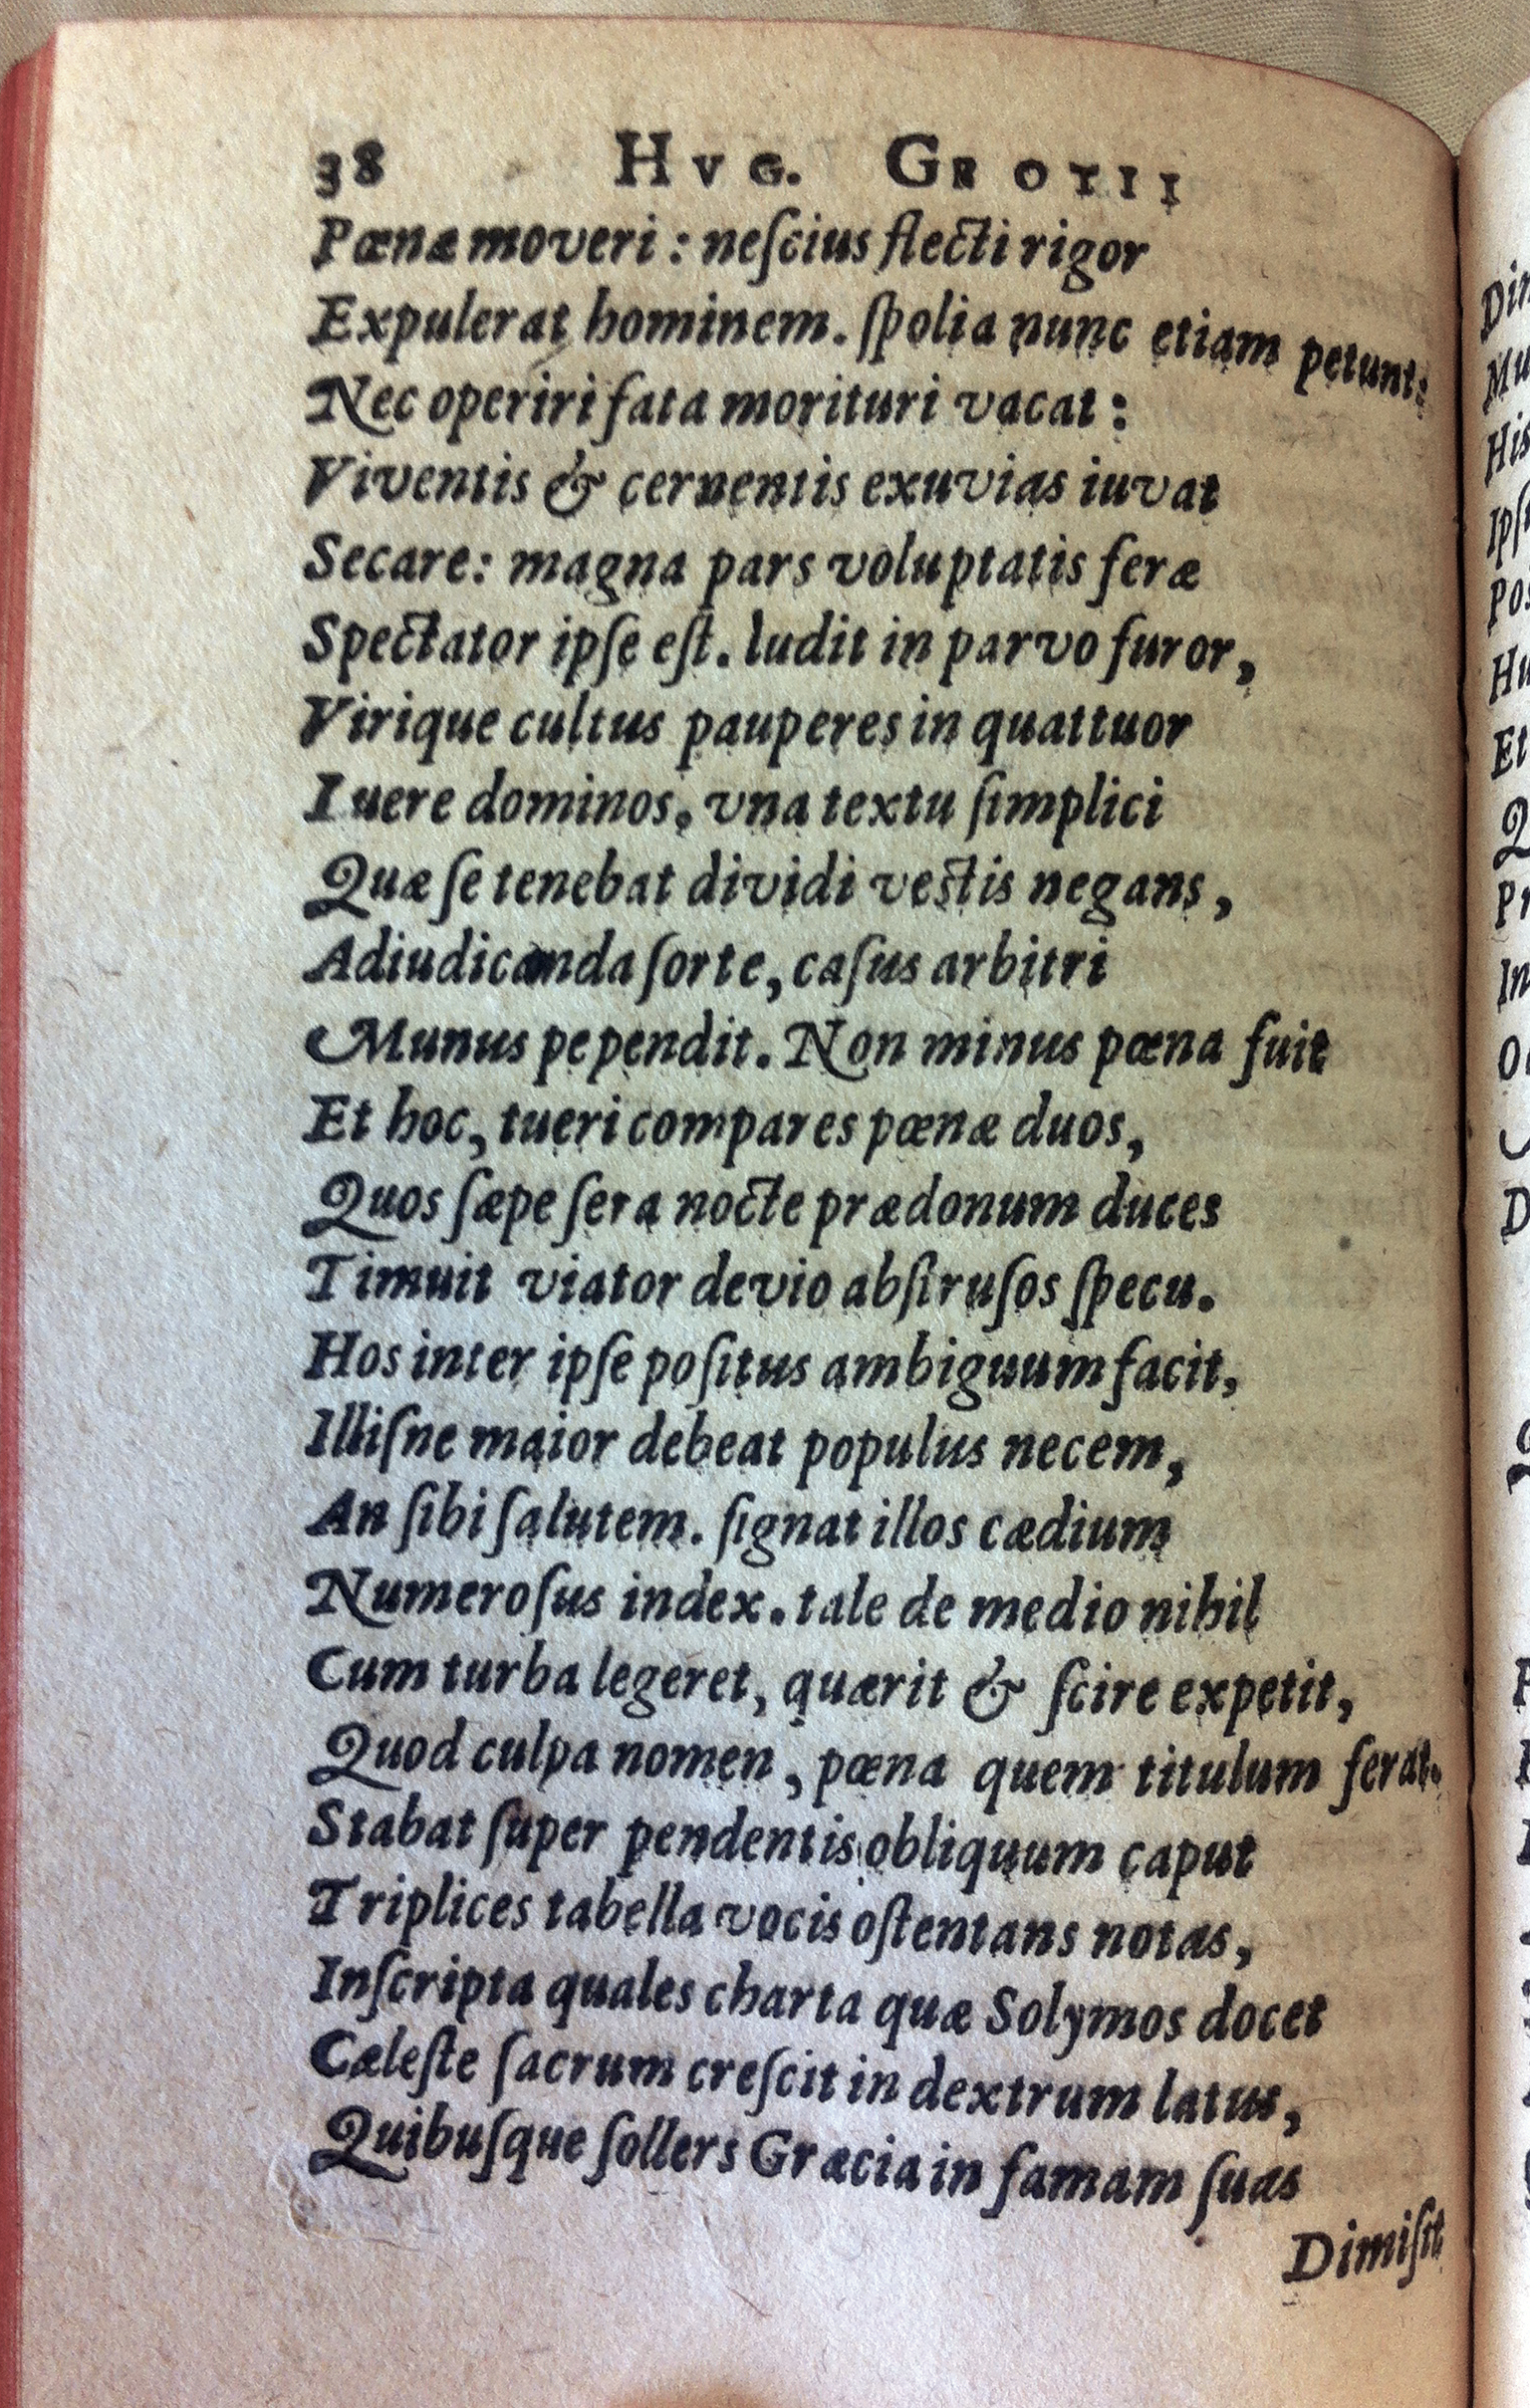 38 HVG. GROTII
Pœnæ moveri : neſcius flecti rigor
Expulerat hominem. ſpolia nunc etiam petunt:
Nec operiri fata morituri vacat :
Viventis & cernentis exuvias iuvat
Secare: magna pars voluptatis feræ
Spectator ipſe eſt. ludit in parvo furor,
Virique cultus pauperes in quattuor
Iuere dominos. vna textu ſimplici
Quæ ſe tenebat dividi veſtis negans,
Adiudicanda ſorte, caſus arbitri
Munus pependit. Non minus pœna fuit
Et hoc, tueri compares pœnæ duos,
Quos ſæpe ſera nocte prædonum duces
Timuit viator devio abſtruſos ſpecu.
Hos inter ipſe poſitus ambiguum facit,
Illiſne maior debeat populus necem,
An ſibi ſalutem. ſignat illos cædium
Numeroſus index. tale de medio nihil
Cum turba legeret, quærit & ſcire expetit,
Quod culpa nomen, pœna quem titulum ferat.
Stabat ſuper pendentis obliquum caput
Triplices tabella vocis oſtentans notas,
Inſcripta quales charta quæ Solymos docet
Cæleſte ſacrum creſcit in dextrum latus,
Quibuſque ſollers Græcia in famam ſuas
Dimiſit